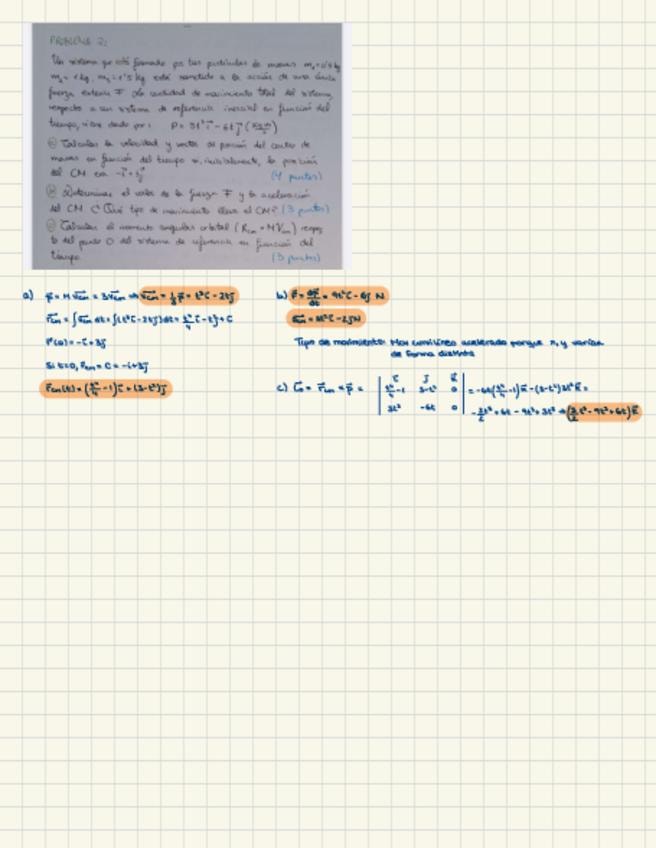 PROBLEMA 2:
Un sistema que está formado por tres partículas de masas m₁=0'5 kg
m₂ = 1 kg, m₃ = 1'5 kg está sometido a la acción de una única
fuerza externa F. La cantidad de movimiento total del sistema,
respecto a un sistema de referencia inercial en función del
tiempo, viene dado por: P = 3t³ i - 6t j (kg m/s)
a) Calcular la velocidad y vector de posición del centro de
masas en función del tiempo si, inicialmente, la posición
del CM era -i + 3j (4 puntos)
b) Determinar el valor de la fuerza F y la aceleración
del CM ¿Qué tipo de movimiento lleva el CM? (3 puntos)
c) Calcular el momento angular orbital (R_CM × M V_CM) respec
to del punto O del sistema de referencia en función del
tiempo (3 puntos)
a) p = M v_cm = 3v_cm ⇒ v_cm = 1/3 p = t³i - 2tj
r_cm = ∫v_cm dt = ∫(t³i - 2tj)dt = t⁴/4 i - t²j + C
r(0) = -i + 3j
Si t=0, r_cm = C = -i + 3j
r_cm(t) = (t⁴/4 - 1)i + (3 - t²)j
b) F = dp/dt = 9t²i - 6j N
a_cm = 3t²i - 2j N
Tipo de movimiento: Mov curvilíneo acelerado porque x, y varían
de forma distinta
c) L₀ = r_cm × p =
i j k
t⁴/4 - 1 3 - t² 0
3t³ -6t 0
= -6t(t⁴/4 - 1)k - (3 - t²)3t³k =